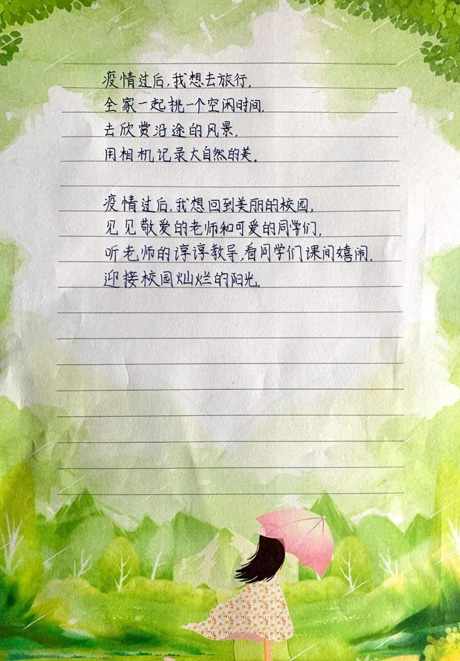 疫情过后,我想去旅行,
全家一起挑一个空闲时间,
去欣赏沿途的风景,
用相机记录大自然的美。
疫情过后,我想回到美丽的校园,
见见敬爱的老师和可爱的同学们,
听老师的谆谆教导,看同学们课间嬉闹,
迎接校园灿烂的阳光。